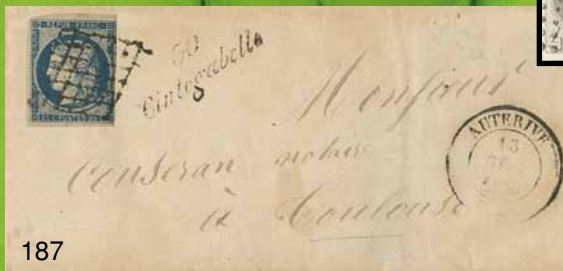 REPUB. FRANC.
30
Cintegabelle
Monsieur
Conseran notaire
à Toulouse
AUTERIVE
13
187